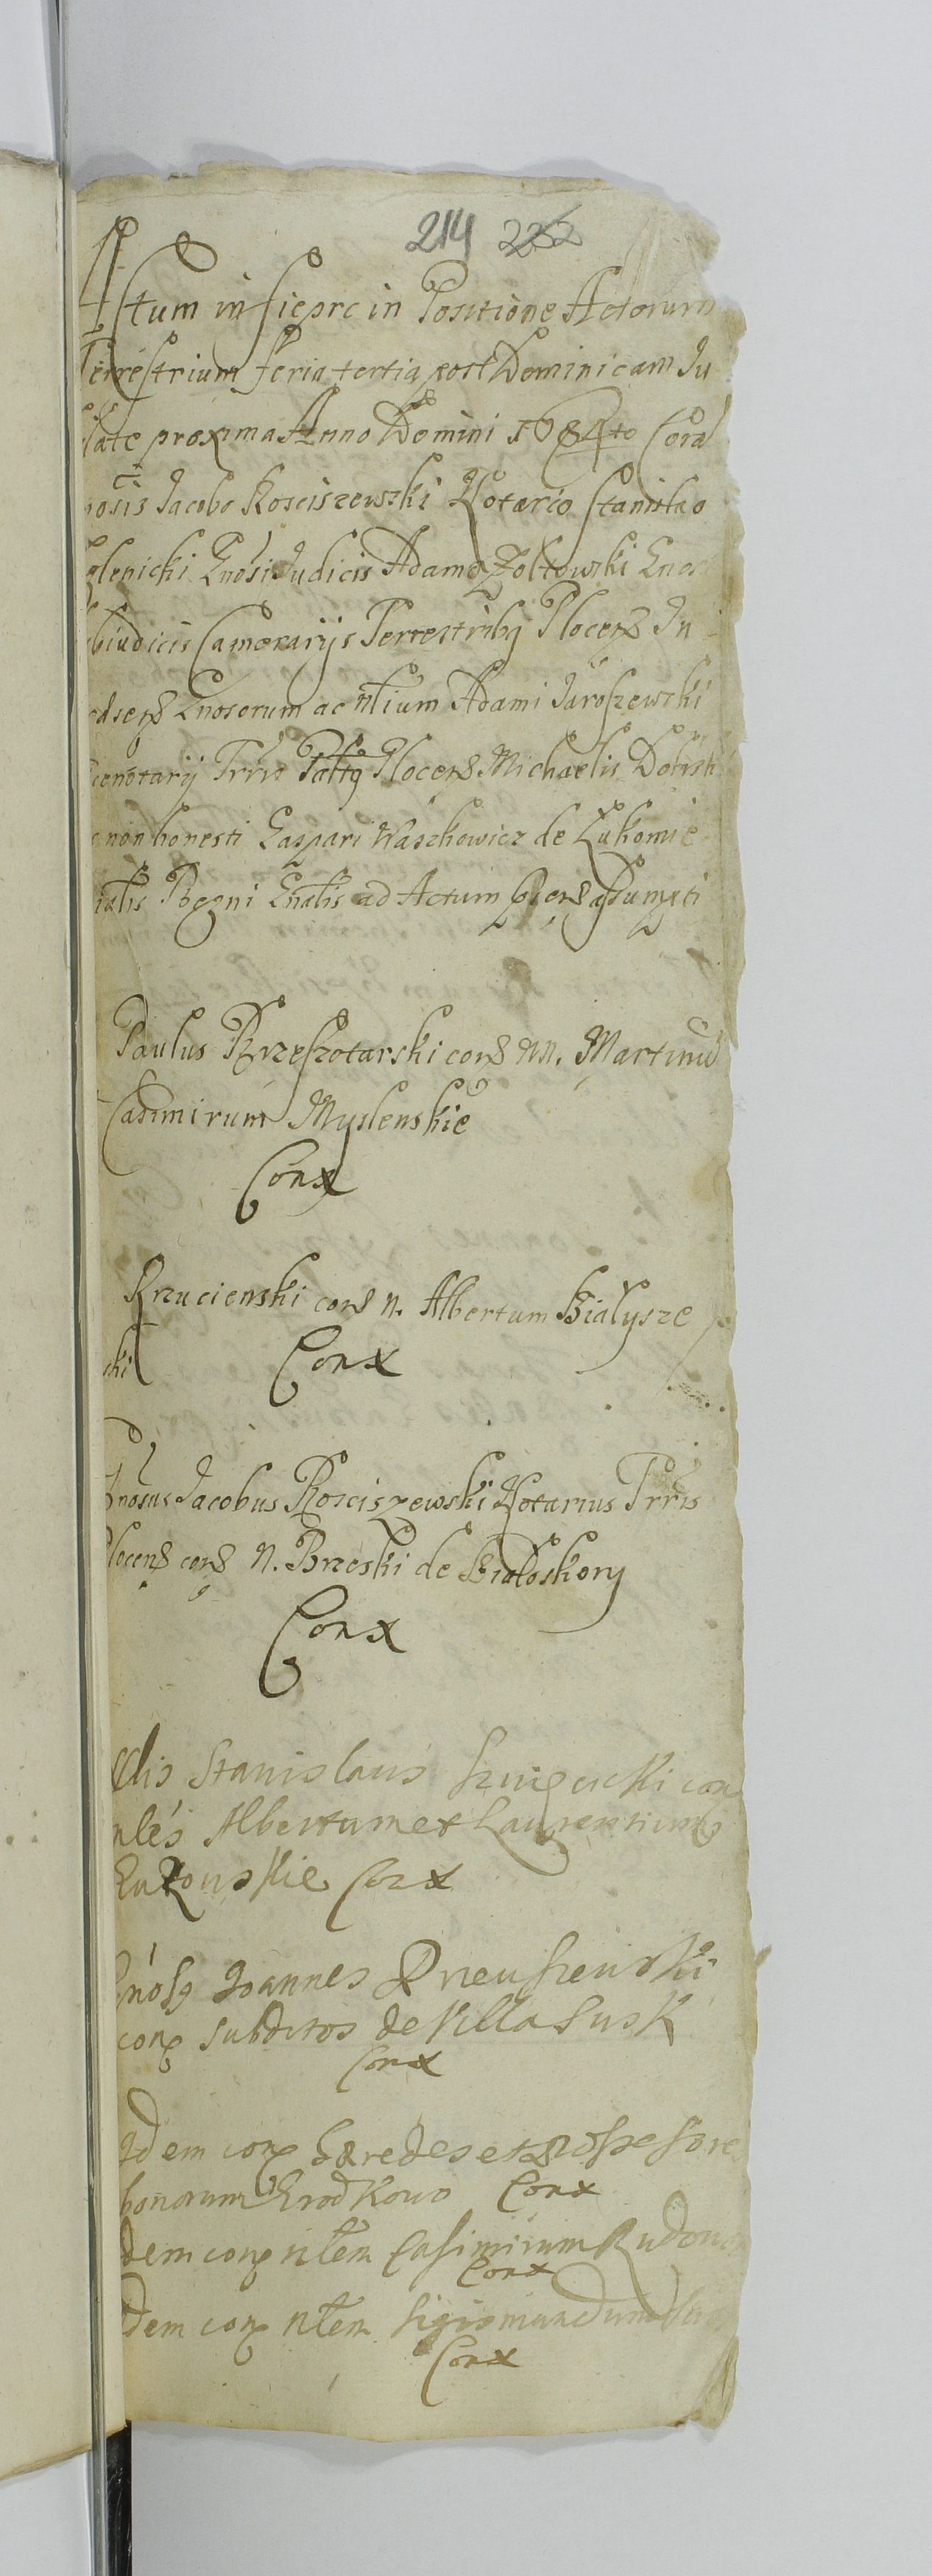 214 222
Actum in Sieprc in Positione Actorum
Terrestrium feria tertia post Dominicam Ju
late proxima Anno Domini 1684to Cora
nosis Jacobo Kosciszewski Notario Stanislao
olenicki Gnosi Judicis Adamo Zołtowski Gnos
biudicis Camerarijs Terrestribq Plocens Ju
dsens Gnosorum ac nlium Adami Jaroszewski
cenotarij Trris Paltq Plocens Michaelis Dobrsk
non honesti Gaspari Waszkowicz de Łukomie
ialis Regni Gnalis ad Actum pñs assumpti
Paulus Brzeszotarski cons NN. Martinu
Casimirum Myslenskie
Conx
Krzucienski cons N. Albertum Białysze
ski Conx
Gnosus Jacobus Kosciszewski Notarius Trris
locens cons N. Brzeski de Białoskory
Conx
Nlis Stanislaus con
nles Albertum et Laurentium
Conx
Gnosq Joannes
conx subditos de Villa Susk
Conx
Idem conx hæredes et possessore
bonorum Grodkowo Conx
dem conx nlem Casimirum Rudow
Conx
dem conx nlem Sigismundum
Conx